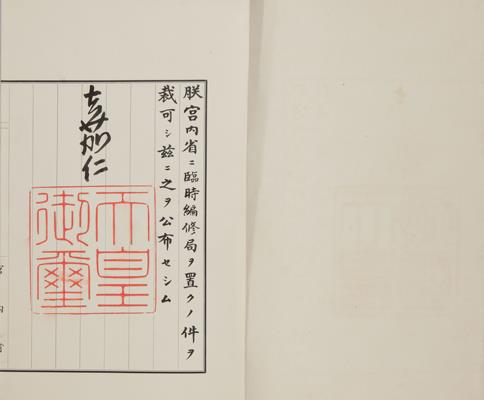 朕宮内省ニ臨時編修局ヲ置クノ件ヲ
裁可シ玆ニ之ヲ公布セシム
嘉仁
天皇
御璽
宮内省